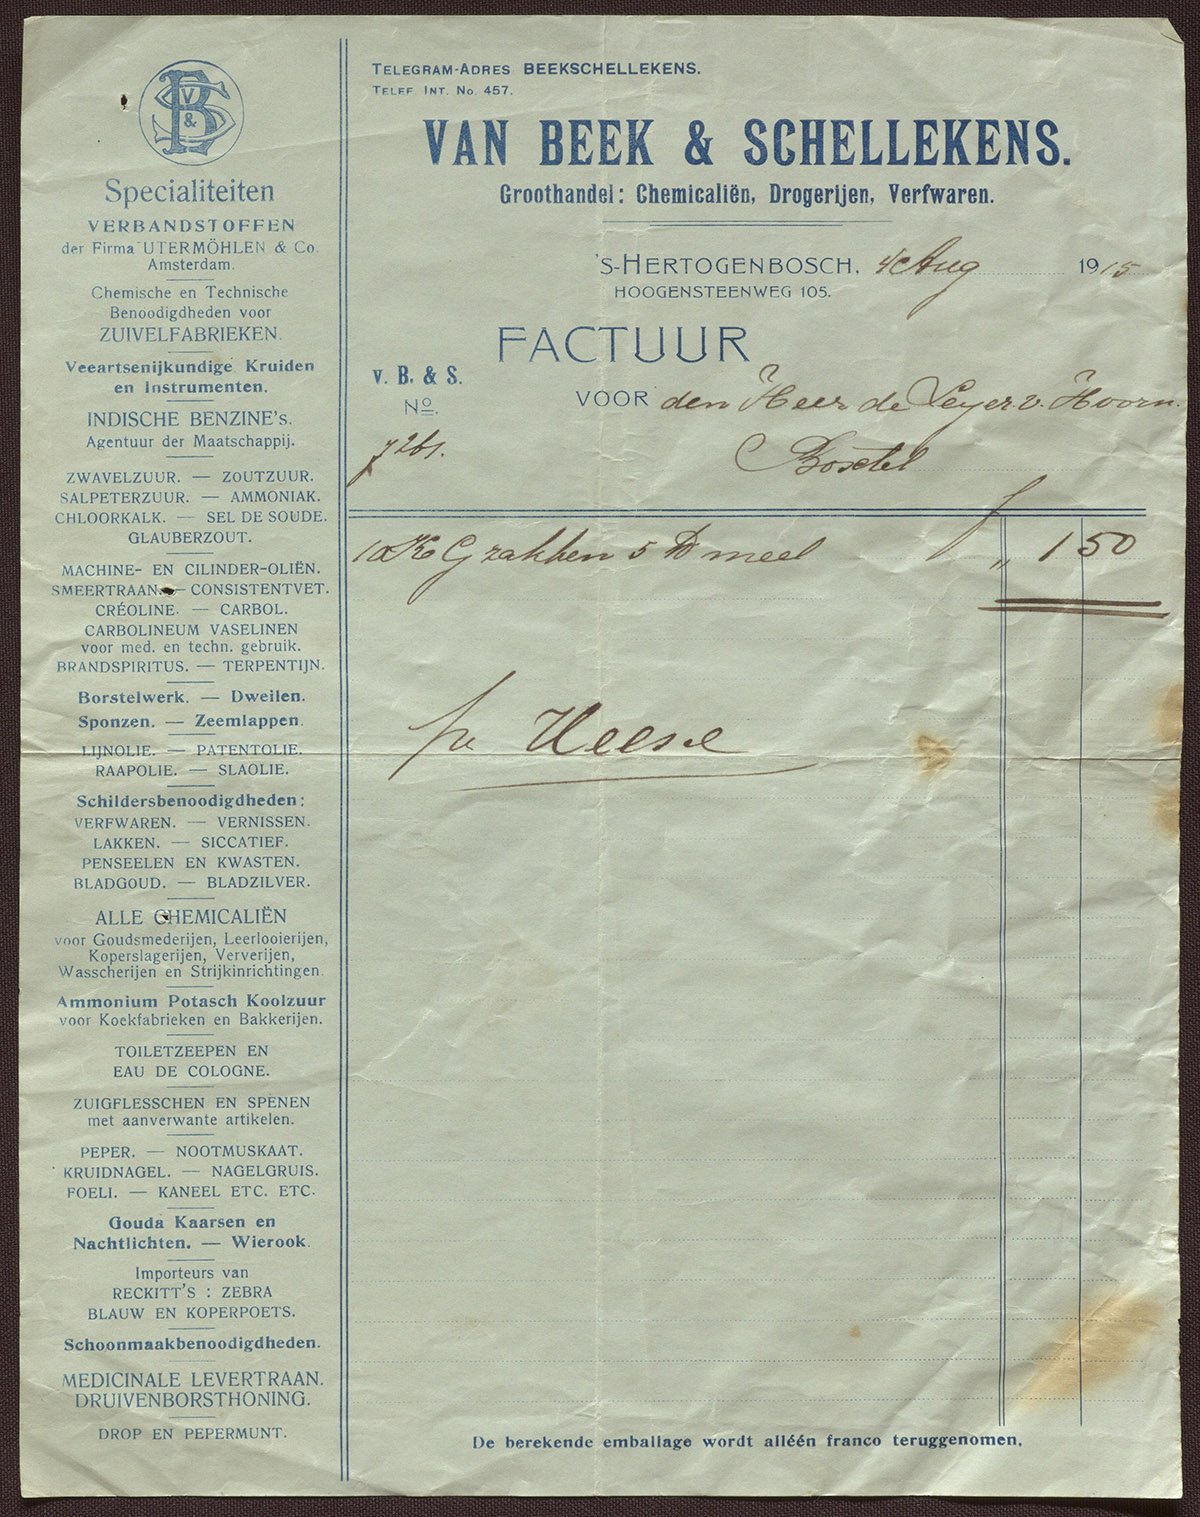 V
B
S
&
Specialiteiten
VERBANDSTOFFEN
der Firma UTERMÖHLEN & Co.
Amsterdam.
Chemische en Technische
Benoodigdheden voor
ZUIVELFABRIEKEN.
Veeartsenijkundige Kruiden
en Instrumenten.
INDISCHE BENZINE's.
Agentuur der Maatschappij.
ZWAVELZUUR. — ZOUTZUUR.
SALPETERZUUR. — AMMONIAK.
CHLOORKALK. — SEL DE SOUDE.
GLAUBERZOUT.
MACHINE- EN CILINDER-OLIËN.
SMEERTRAAN. — CONSISTENTVET.
CRÉOLINE. — CARBOL.
CARBOLINEUM VASELINEN
voor med. en techn. gebruik.
BRANDSPIRITUS. — TERPENTIJN.
Borstelwerk. — Dweilen.
Sponzen. — Zeemlappen.
LIJNOLIE. — PATENTOLIE.
RAAPOLIE. — SLAOLIE.
Schildersbenoodigdheden:
VERFWAREN. — VERNISSEN.
LAKKEN. — SICCATIEF.
PENSEELEN EN KWASTEN.
BLADGOUD. — BLADZILVER.
ALLE CHEMICALIËN
voor Goudsmederijen, Leerlooierijen,
Koperslagerijen, Ververijen,
Wasscherijen en Strijkinrichtingen.
Ammonium Potasch Koolzuur
voor Koekfabrieken en Bakkerijen.
TOILETZEEPEN EN
EAU DE COLOGNE.
ZUIGFLESSCHEN EN SPENEN
met aanverwante artikelen.
PEPER. — NOOTMUSKAAT.
KRUIDNAGEL. — NAGELGRUIS.
FOELI. — KANEEL ETC. ETC.
Gouda Kaarsen en
Nachtlichten. — Wierook.
Importeurs van
RECKITT'S : ZEBRA
BLAUW EN KOPERPOETS.
Schoonmaakbenoodigdheden.
MEDICINALE LEVERTRAAN.
DRUIVENBORSTHONING.
DROP EN PEPERMUNT.
TELEGRAM-ADRES BEEKSCHELLEKENS.
TELEF. INT. No. 457.
VAN BEEK & SCHELLEKENS.
Groothandel: Chemicaliën, Drogerijen, Verfwaren.
'S-HERTOGENBOSCH, 4 Aug 1915
HOOGENSTEENWEG 105.
FACTUUR
v. B. & S.
No.
VOOR den Heer de Leyer v. Hoorn.
Boxtel
zakken 5 meel " 1 50
De berekende emballage wordt alléén franco teruggenomen.